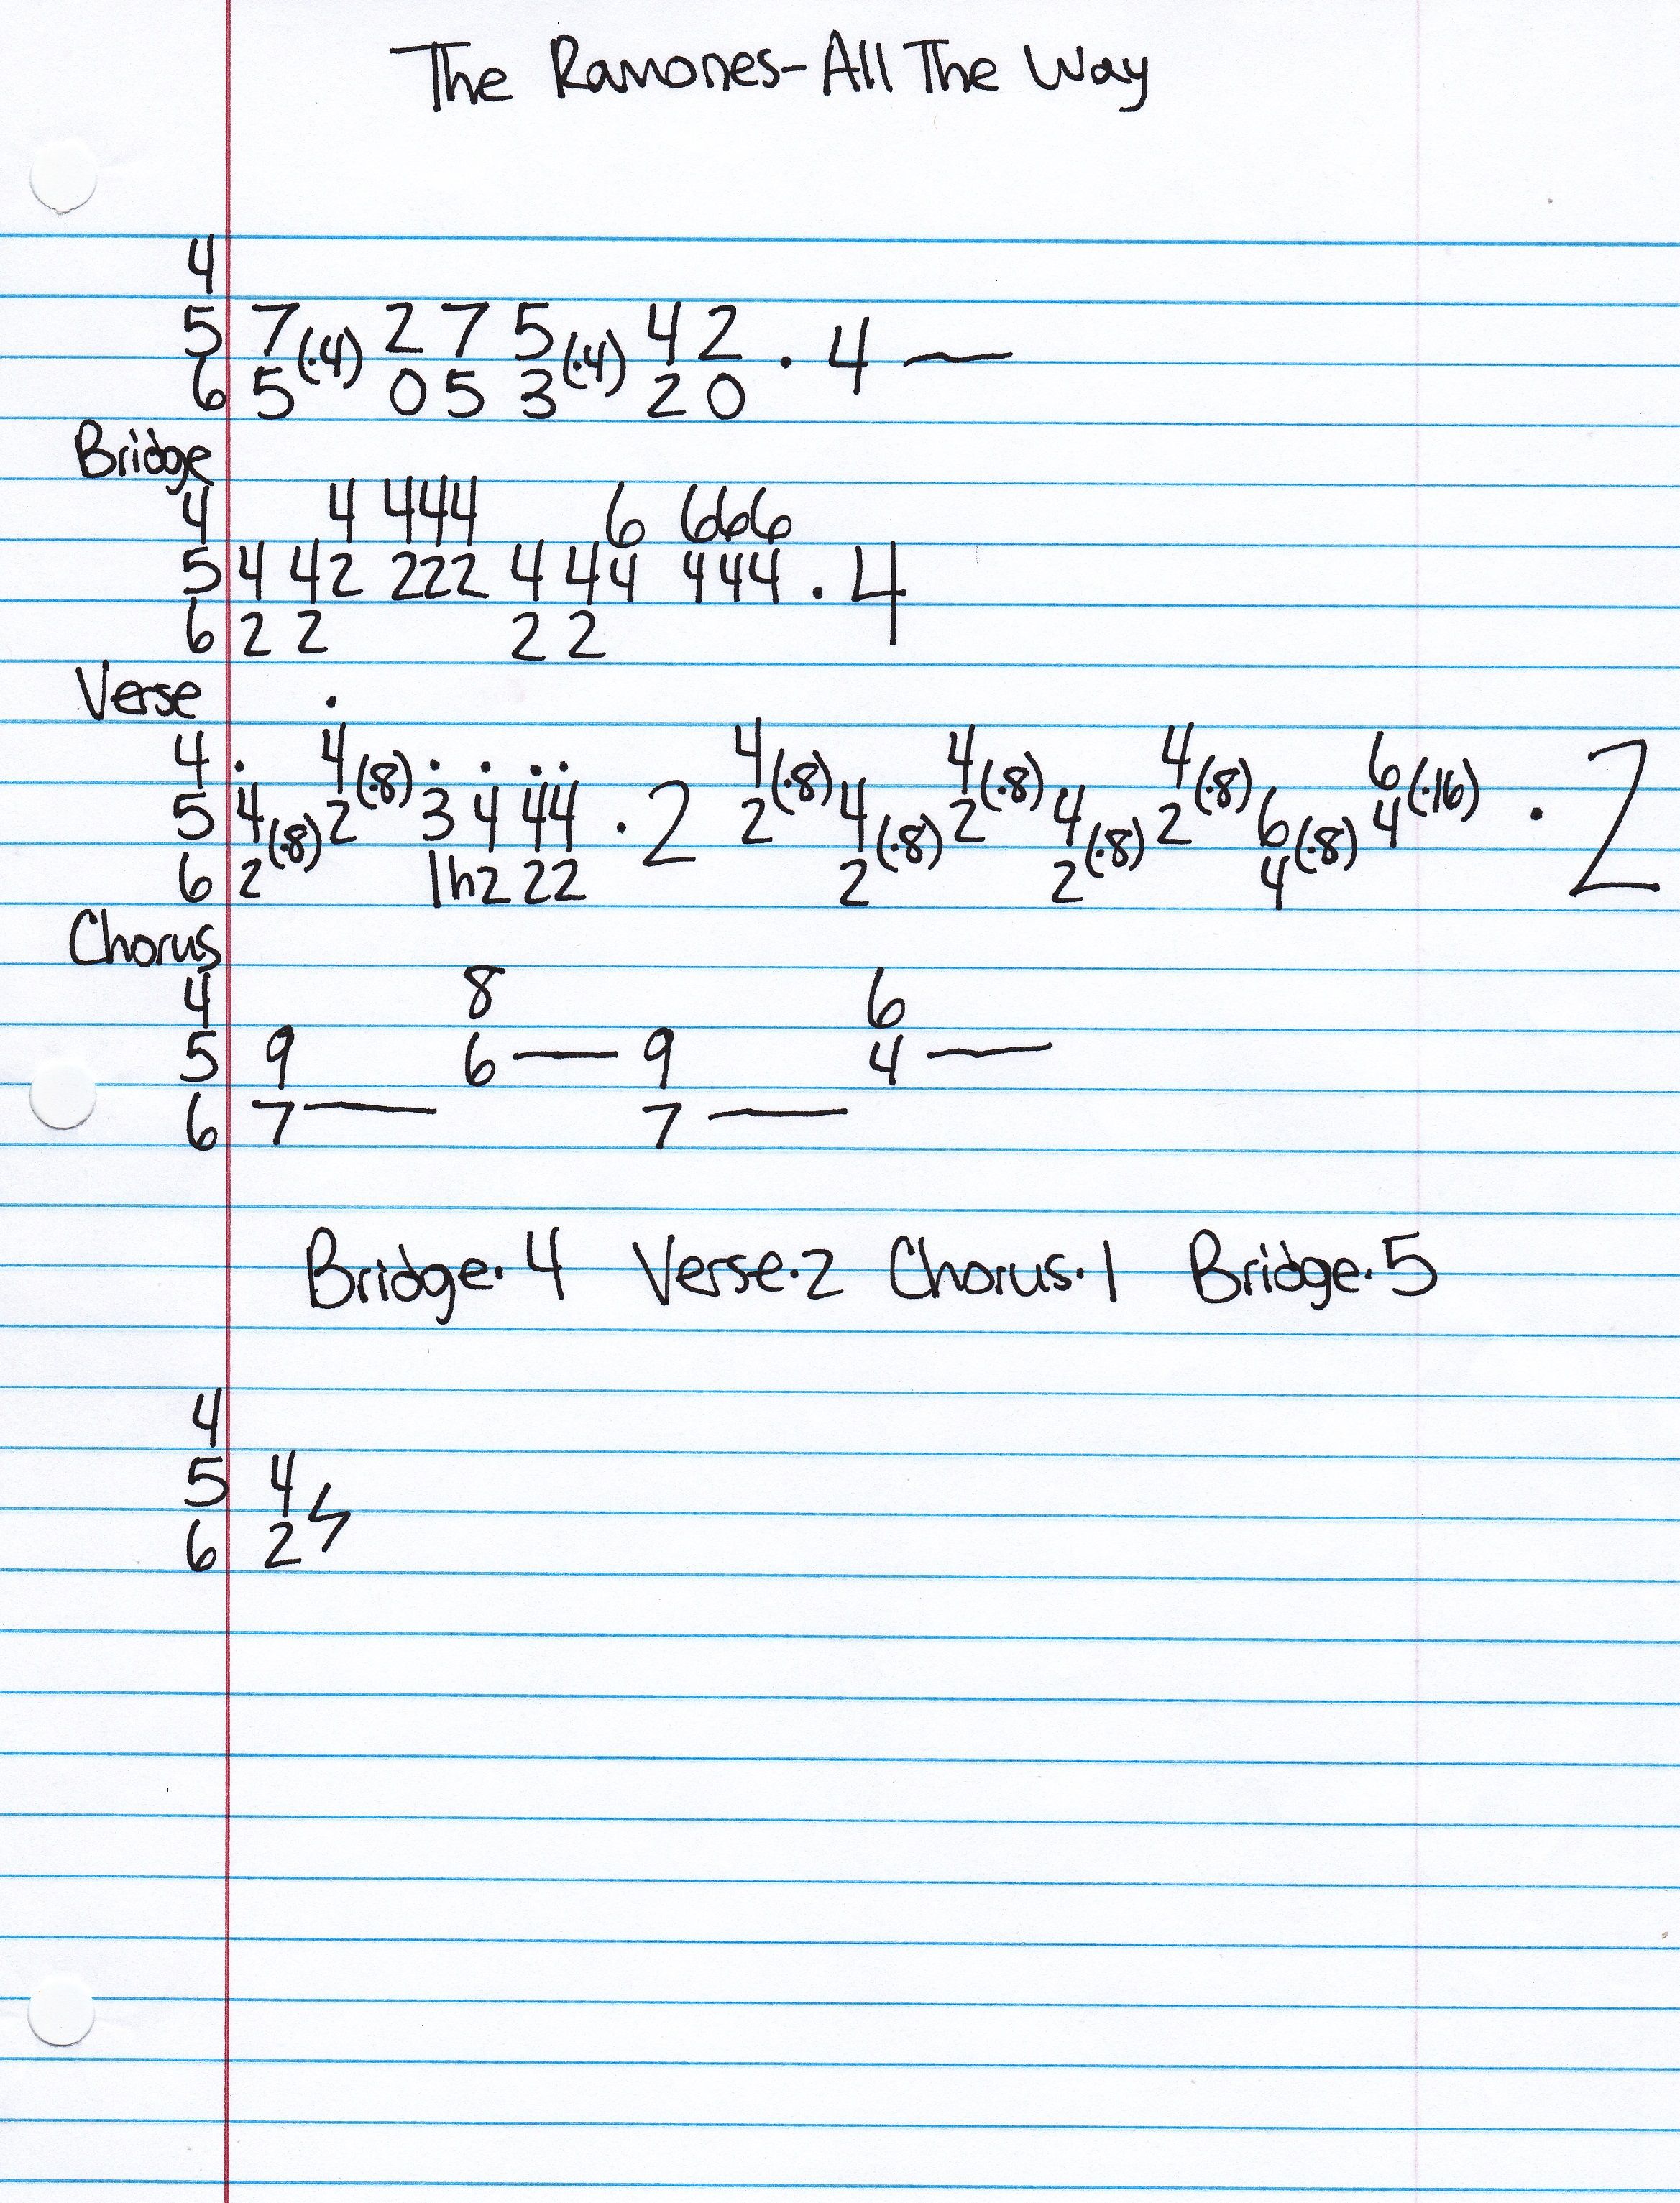 The Ramones-All The Way
4
5 7(·4) 2 7 5(·4) 4 2 · 4 —
6 5 0 5 3 2 0
Bridge
4 4 444 6 666
5 4 42 222 4 44 444 · 4
6 2 2 2 2
Verse
4 4(·8) 4(·8) 4(·8) 4(·8) 6(·16)
5 4(·8) 2 3 4 44 · 2 2 4(·8) 2 4(·8) 2 6(·8) 4 · 2
6 2 1h2 22 2 2 4
Chorus
4 8 6
5 9 6 — 9 4 —
6 7 — 7 —
Bridge·4 Verse·2 Chorus·1 Bridge·5
4
5 4
6 2